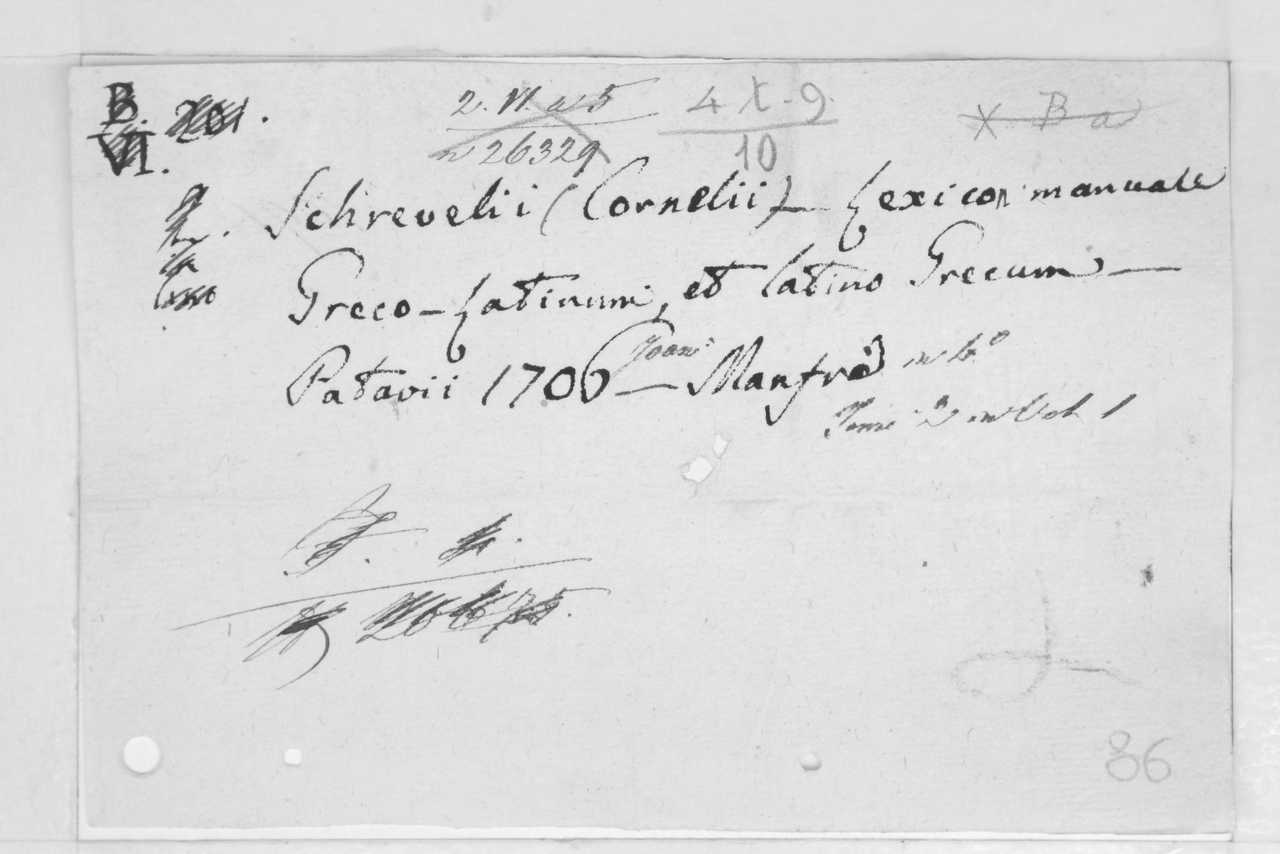 B. 201.
VI.
2. VI. a. 5
n 26329
4 X - 9.
10
X B a
Schrevelii (Cornelii) Lexicon manuale
Greco-Latinum, et Latino Grecum
Patavii 1706 Joan: Manfrè in 4.º
Tomi 2 in Vol. 1
86